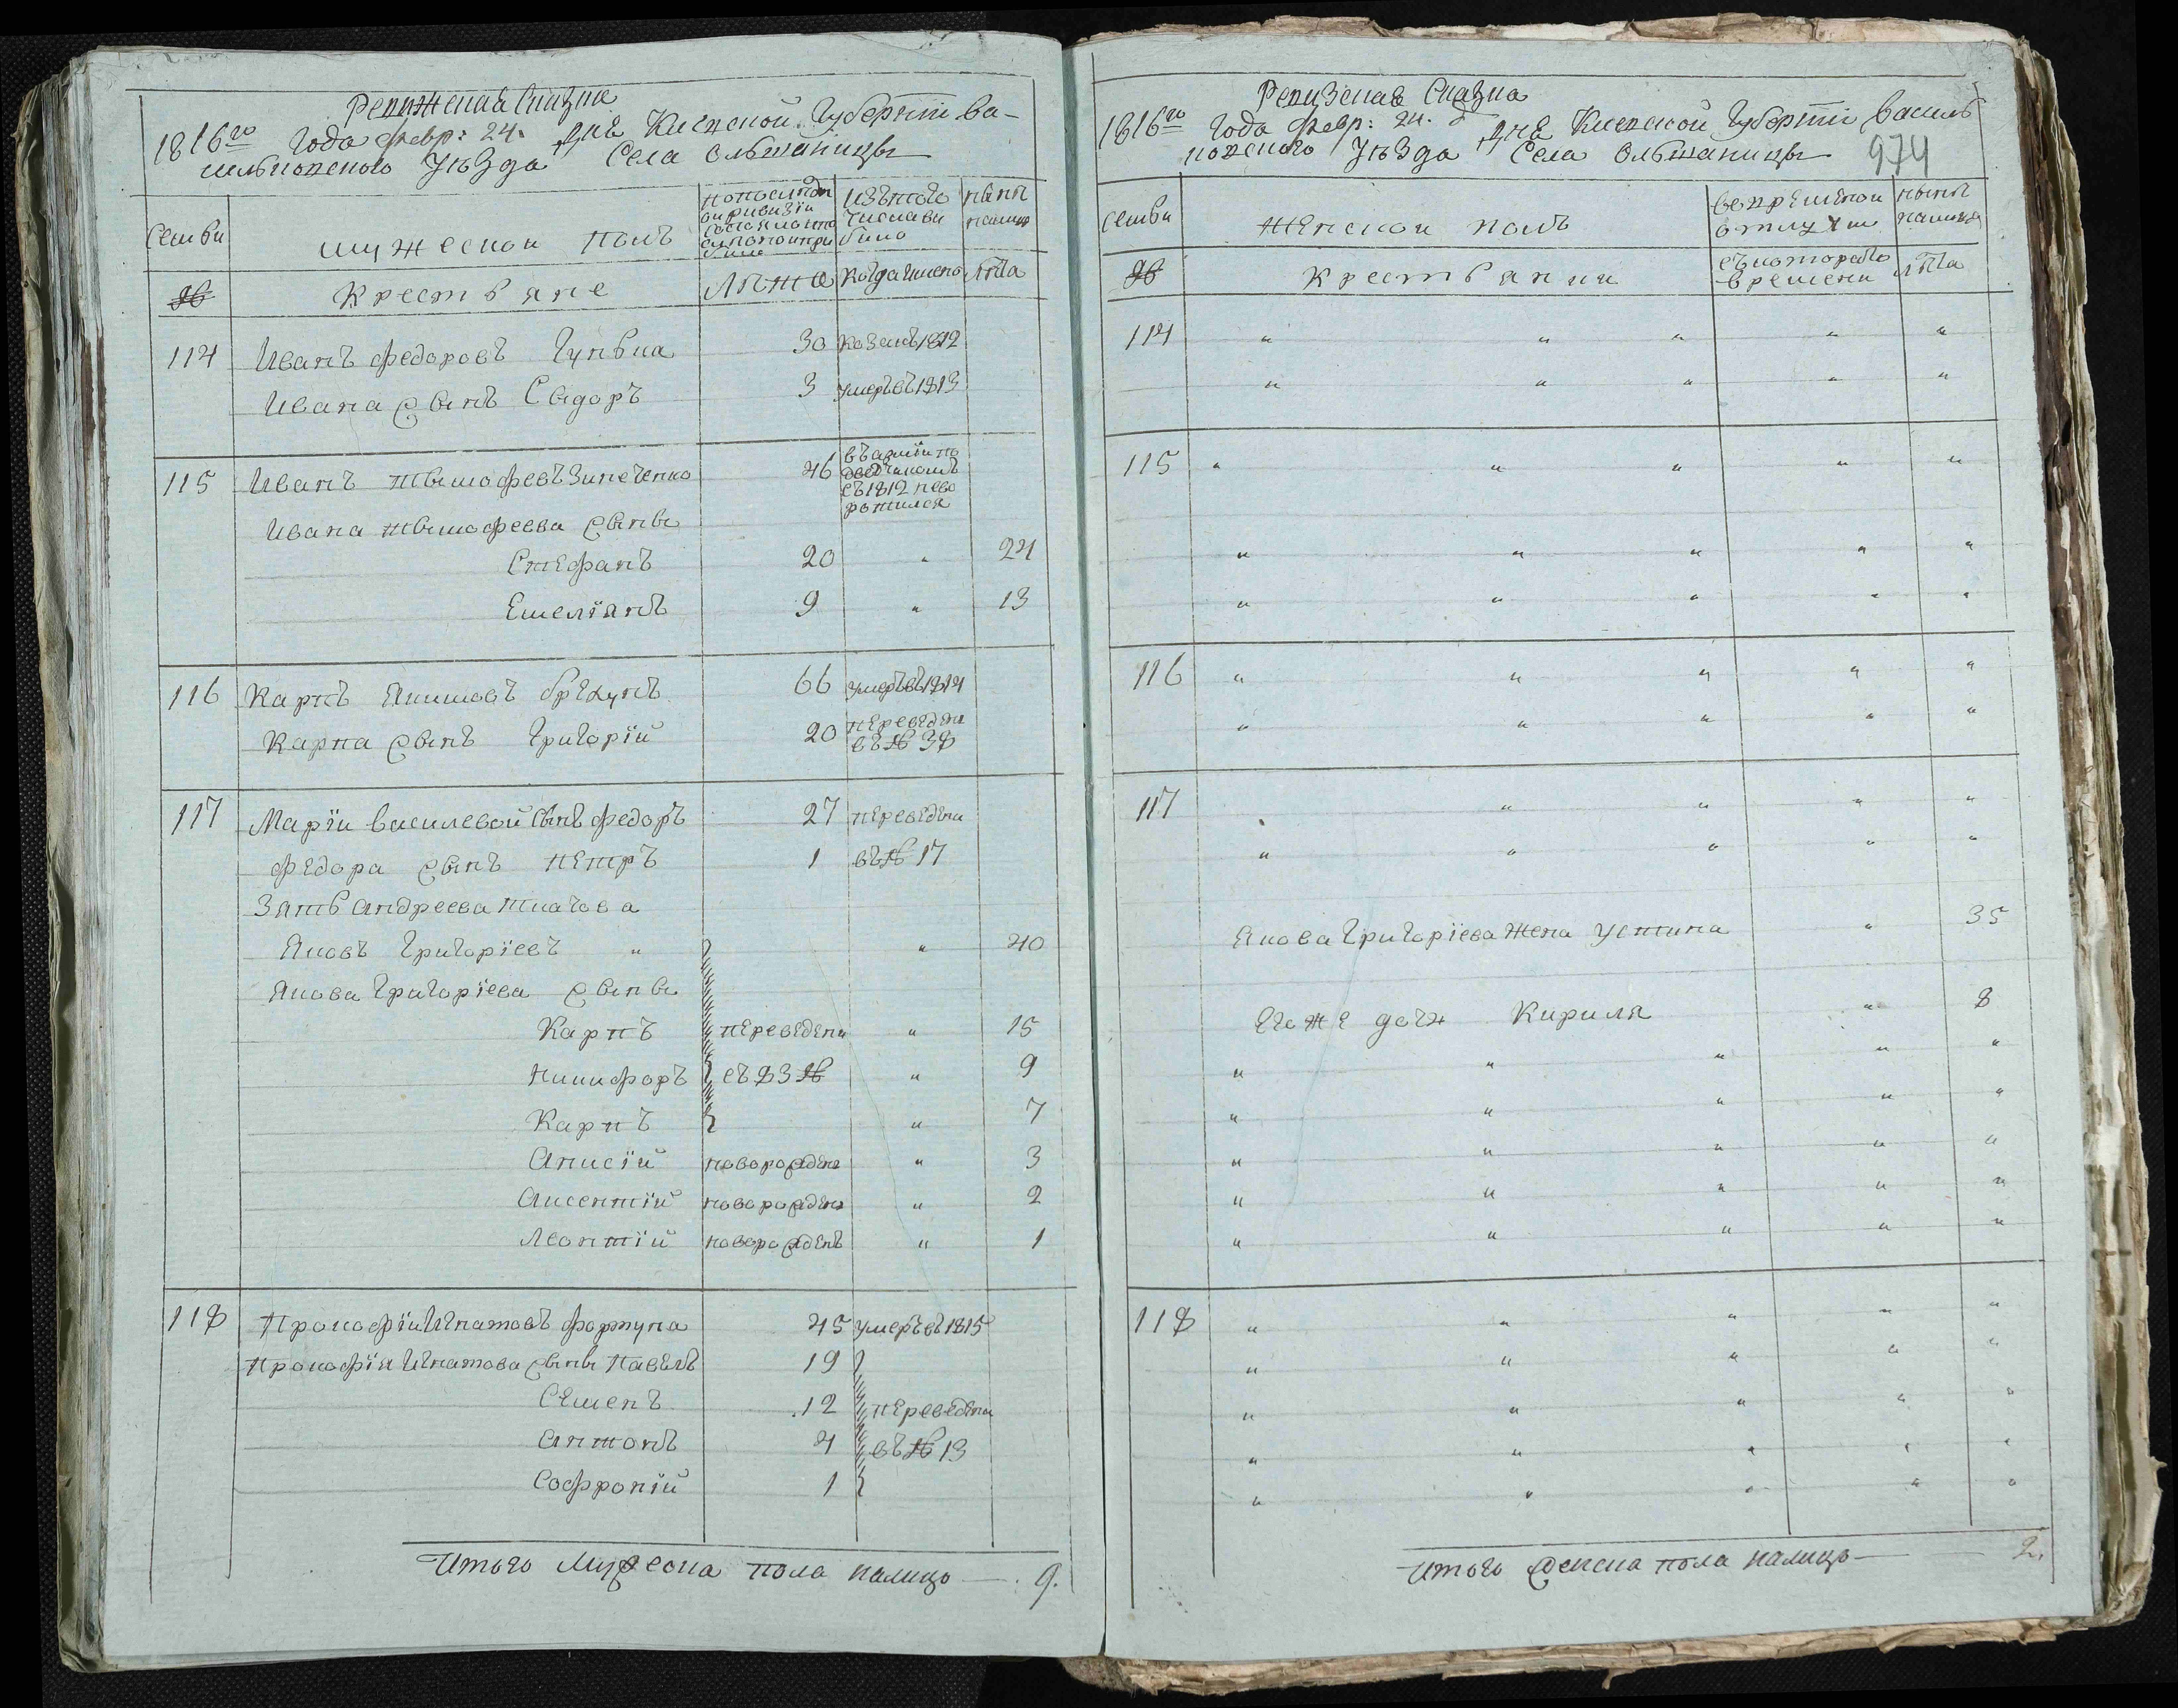 Ревижская Сказка
1816го Года февр: 24. дня Киевской Губернии Ва-
сильковского Уезда Села Ольшаницы
Семьи
мужеской полъ
по последн
ой ревизіи
состояло и по
слѣ оной при
было
Изъ того
числа вы
было
нынѣ
налицо
№
Крестьяне
Лѣта
Когда имено
Лѣта
114 Иванъ Федоровъ Гунька 30 Козакъ 1812
Ивана сынъ Сыдоръ 3 умеръ въ 1813
115 Иванъ Тымофевъ Зинченко 46 въ арміи по
съ 1812 нево
ротился
Ивана Тымофеева сыны
Стефанъ 20 " 24
Емеліянъ 9 " 13
116 Карпъ Якимовъ Брехунъ 66 умеръ въ 1814
Карпа сынъ Григорій 20 переведен
въ № 38
117 Маріи Василевой сынъ Федоръ 27 переведени
Федора сынъ Петръ 1 въ № 17
Зять Андреева Ткачова
Яковъ Григоріевъ " " 40
Якова Григоріева сыны
Карпъ переведени " 15
Никифоръ съ 83 № " 9
Карпъ " 7
Анисій новорожден " 3
Аксентій новорожден " 2
Леонтій новорожденъ " 1
118 Прокофій Игнатовъ Фортуна 45 умеръ въ 1815
Прокофія Игнатова сыны Павелъ 19
Семенъ 12 переведени
Антонъ 4 въ № 13
Софроній 1
Итого Мужеска пола налицо — 9.
Ревизская Сказка
1816го Года февр: 24. дня Киевской Губерніи Василь
ковского Уѣзда Села Ольшаницы
974
Семьи
Женской полъ
Во временной
отлучки
нынѣ
налицо
№
Крестьянки
съ которого
времени
лѣта
114 " " " " "
" " " " "
115 " " " " "
" " " " "
" " " " "
116 " " " " "
" " " " "
117 " " " "
" " " " "
Якова Григоріева жена Устина " 35
Его же дочь Кириля " 8
" " " " "
" " " " "
" " " " "
" " " " "
" " " " "
118 " " " " "
" " " " "
" " " " "
" " " " "
" " " " "
Итого женска пола налицо — 2.